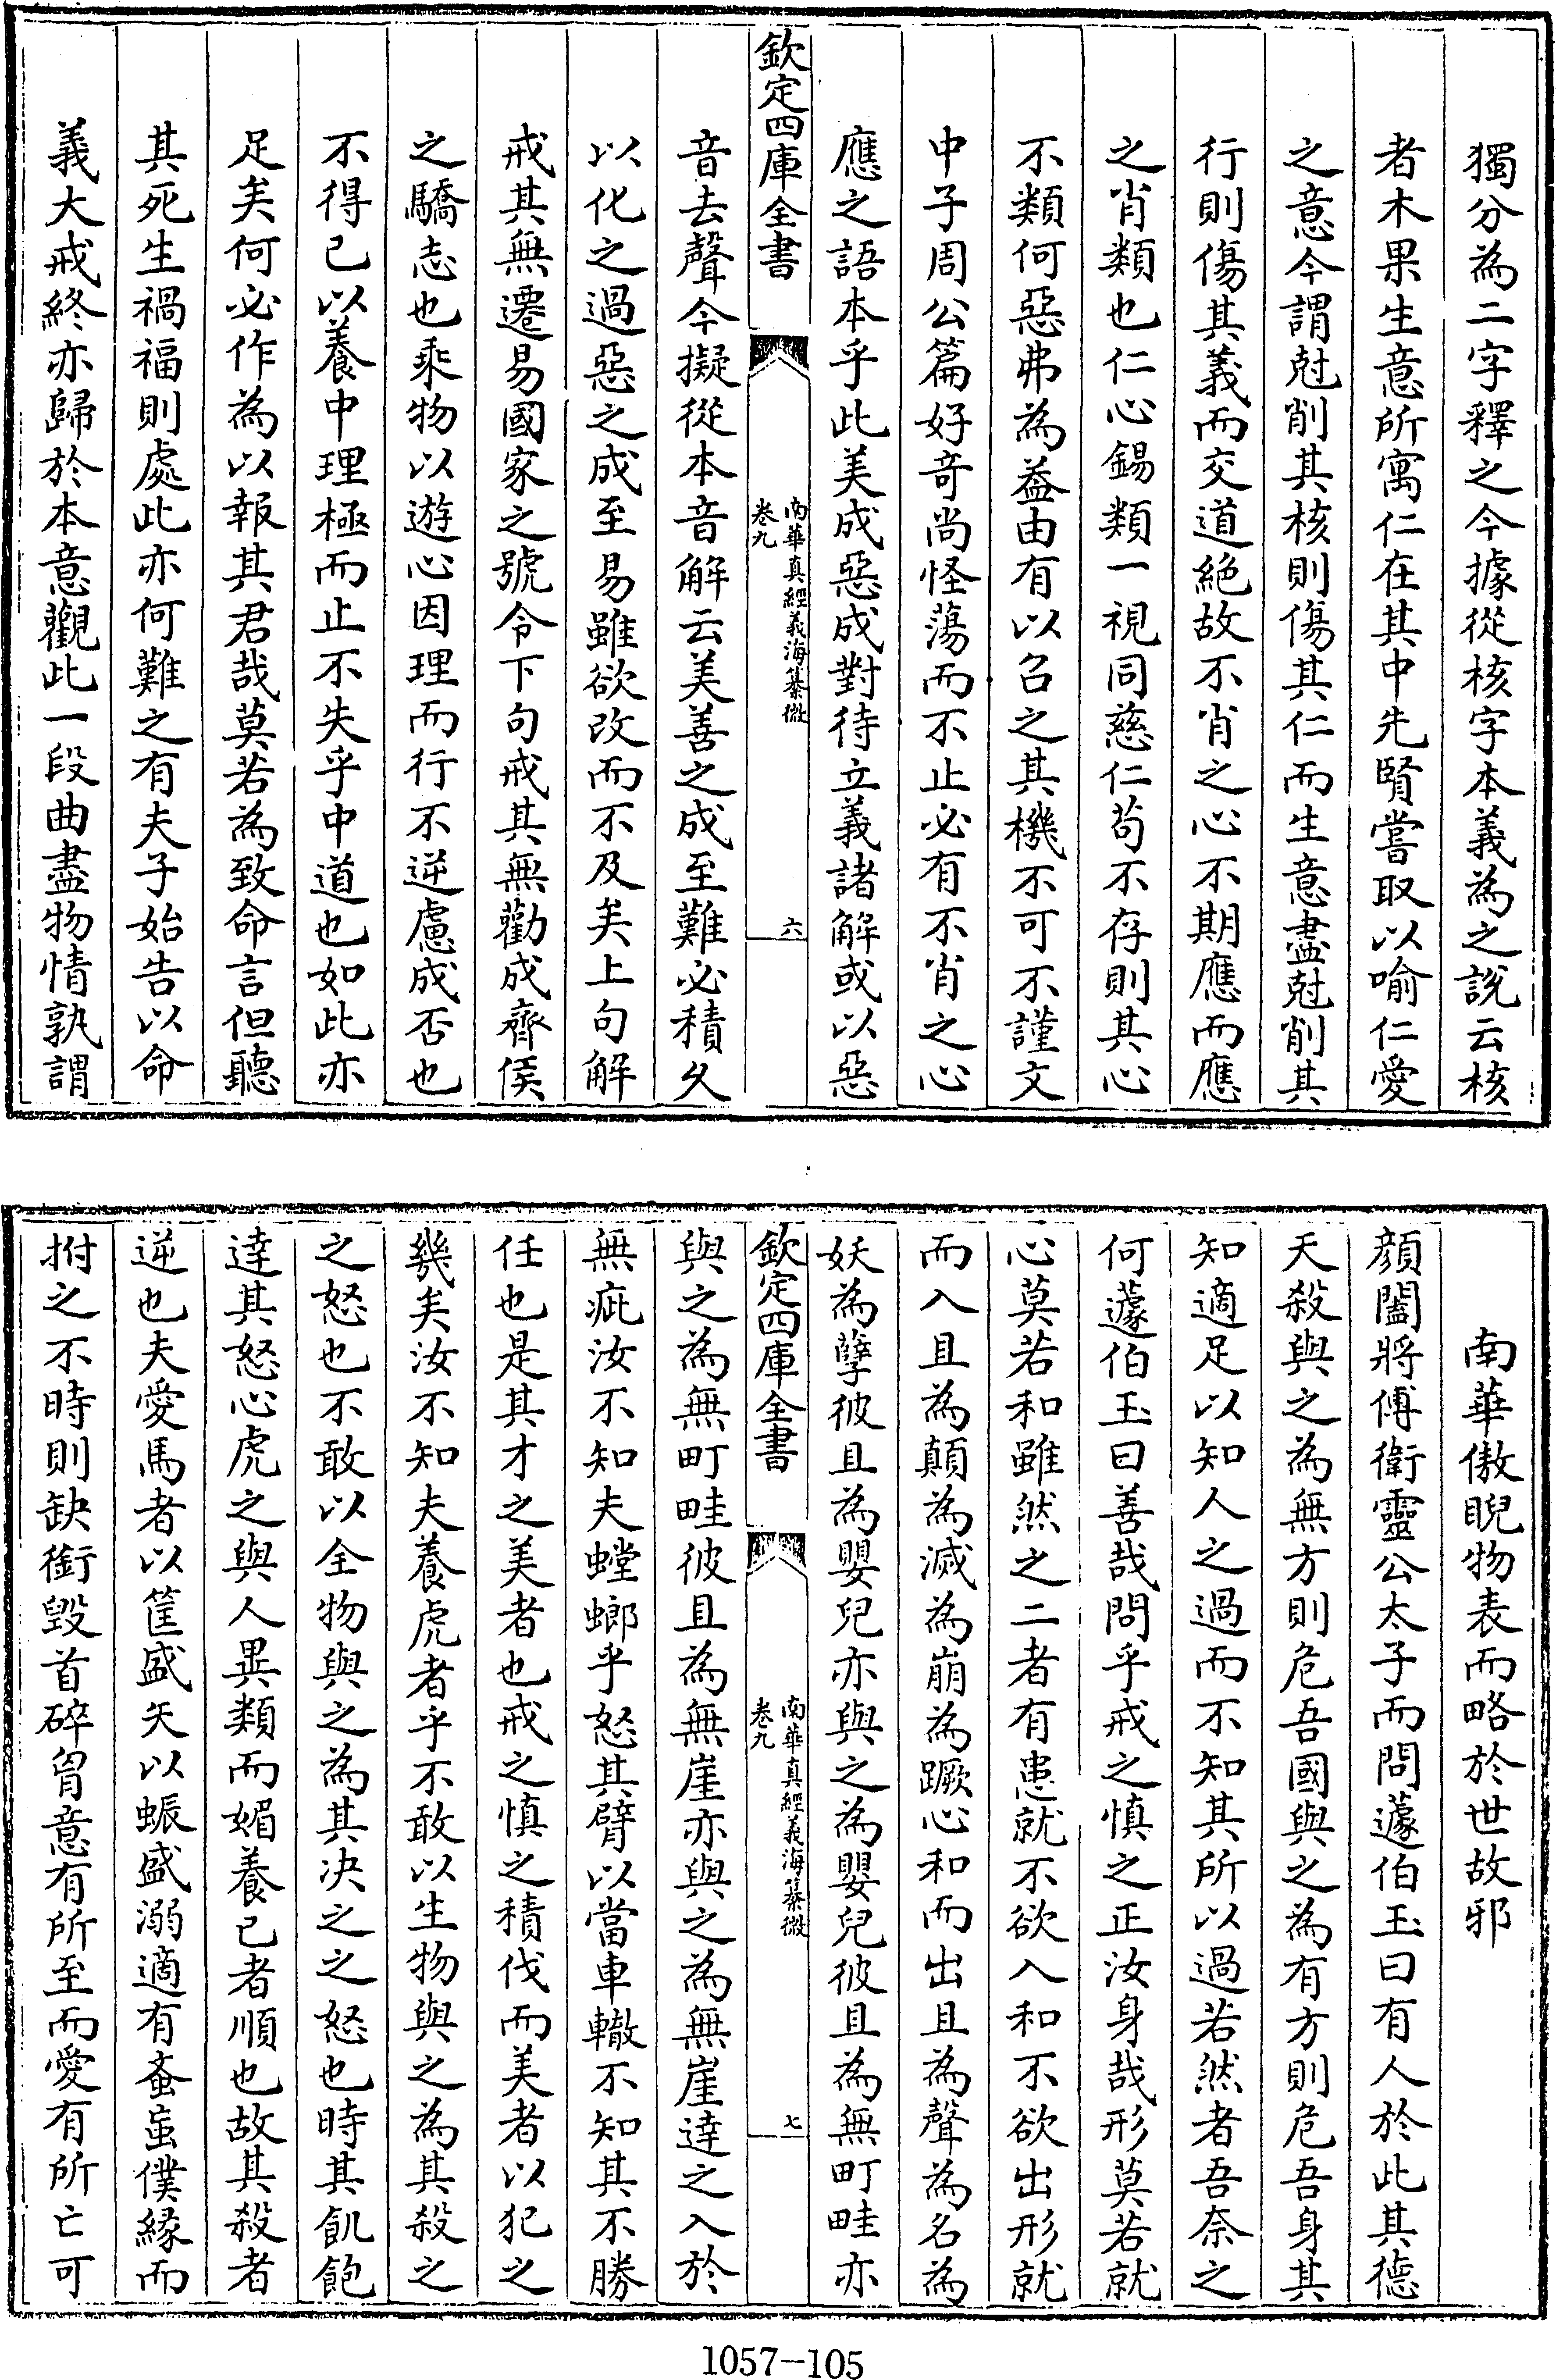 獨分為二字釋之今據從核字本義為之說云核
者木果生意所寓仁在其中先賢嘗取以喻仁愛
之意今謂尅削其核則傷其仁而生意盡尅削其
行則傷其義而交道絕故不肖之心不期應而應
之肖類也仁心錫類一視同慈仁苟不存則其心
不類何惡弗為益由有以召之其機不可不謹文
中子周公篇好奇尚怪蕩而不止必有不肖之心
應之語本乎此美成惡成對待立義諸解或以惡
欽定四庫全書
南華真經義海纂微
卷九
六
音去聲今擬從本音解云美善之成至難必積久
以化之過惡之成至易雖欲改而不及矣上句解
戒其無遷易國家之號令下句戒其無勸成齊侯
之驕志也乘物以遊心因理而行不逆慮成否也
不得已以養中理極而止不失乎中道也如此亦
足矣何必作為以報其君哉莫若為致命言但聽
其死生禍福則處此亦何難之有夫子始告以命
義大戒終亦歸於本意觀此一段曲盡物情孰謂
南華傲睨物表而略於世故邪
顏闔將傅衛靈公太子而問蘧伯玉曰有人於此其德
天殺與之為無方則危吾國與之為有方則危吾身其
知適足以知人之過而不知其所以過若然者吾奈之
何蘧伯玉曰善哉問乎戒之慎之正汝身哉形莫若就
心莫若和雖然之二者有患就不欲入和不欲出形就
而入且為顛為滅為崩為蹶心和而出且為聲為名為
妖為孽彼且為嬰兒亦與之為嬰兒彼且為無町畦亦
欽定四庫全書
南華真經義海纂微
卷九
七
與之為無町畦彼且為無崖亦與之為無崖達之入於
無疵汝不知夫螳螂乎怒其臂以當車轍不知其不勝
任也是其才之美者也戒之慎之積伐而美者以犯之
幾矣汝不知夫養虎者乎不敢以生物與之為其殺之
之怒也不敢以全物與之為其決之之怒也時其飢飽
達其怒心虎之與人異類而媚養己者順也故其殺者
逆也夫愛馬者以筐盛矢以蜄盛溺適有蚉䖟僕緣而
拊之不時則缺銜毀首碎胷意有所至而愛有所亡可
1057-105